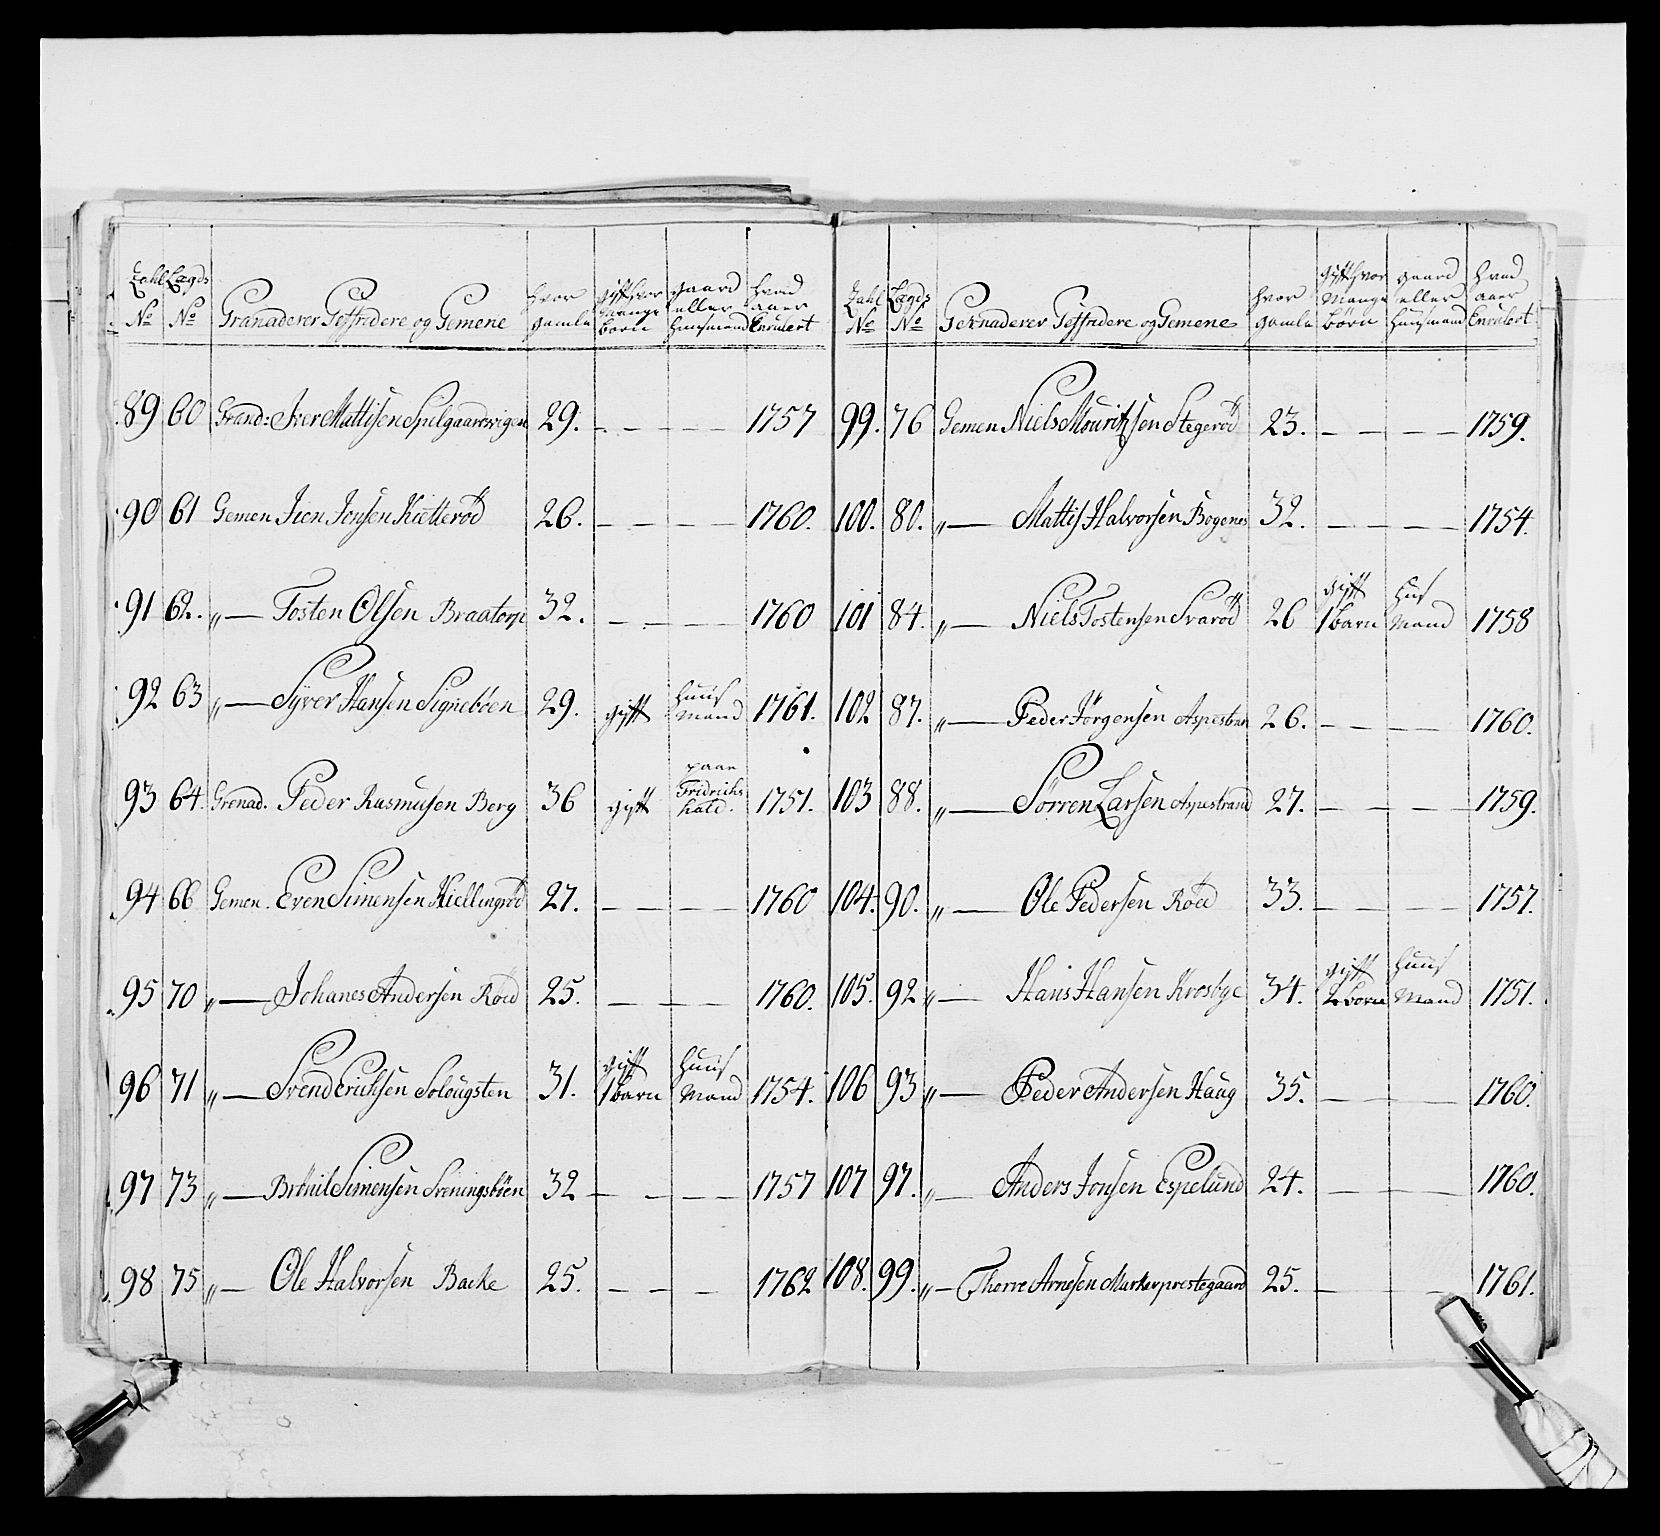 Zahl Lægds hvor gift hvor gaard hvad
No No Granaderer Geffridere og Gemene gamle mange børn eller huusmand aaer Enrulert
89 60 Grand: Iver Mattisen Spelgaardsvigen 29. - - - - 1757
90 61 Gemen Iven Jonsen Kietterød 26. - - - - 1760.
91 62. „— Tosten Olsen Braatorp 32. - - - - 1760
92 63 „— Syver Hansen Signebøen 29. gift huus mand 1761.
93 64. Grenad. Peder Rasmusen Berg 36 gift paae Fridrichs hald. 1751.
94 66 Gemen. Even Simensen Kiellingrød 27. - - - - 1760
95 70 „— Johanes Andersen Røed 25. - - - 1760.
96 71 „— Svend Erichsen Solougsten 31. gift 1 barn huus mand 1754.
97 73 „— Brthil Simensen Sveningsbøen 32 - - - - 1757
98 75 „— Ole Halvorsen Backe 25. - - - 1762
Zahl Lægds hvor gift hvor gaard hvad
No No Gernaderer Geffridere og Gemene gamle mange børn eller huusmand aaer Enrulert
99. 76 Gemen Niels Mouritzsen Stegerød 23. - - - - 1759.
100. 80. „— Mattis Halvorsen Bogenes 32. - - - - 1754.
101 84. „— Niels Tostensen Svarød 26 gift 1 barn hus mand 1758
102 87. „— Peder Jørgensen Aspestran 26. - - - - 1760.
103 88. „— Sørren Larsen Aspestrand 27. - - - - 1759.
104. 90. „— Ole Pedersen Røed 33. - - - - 1757.
105. 92 „— Hans Hansen Krosbye 34. gift 2 børn huus mand 1751.
106 93 „— Peder Andersen Haug 35. - - - 1760.
107 97. „— Anders Jonsen Espelund 24. - - - 1760.
108. 99. „— Thorre Arnesen Markerprestegaard 25. - - - 1761.